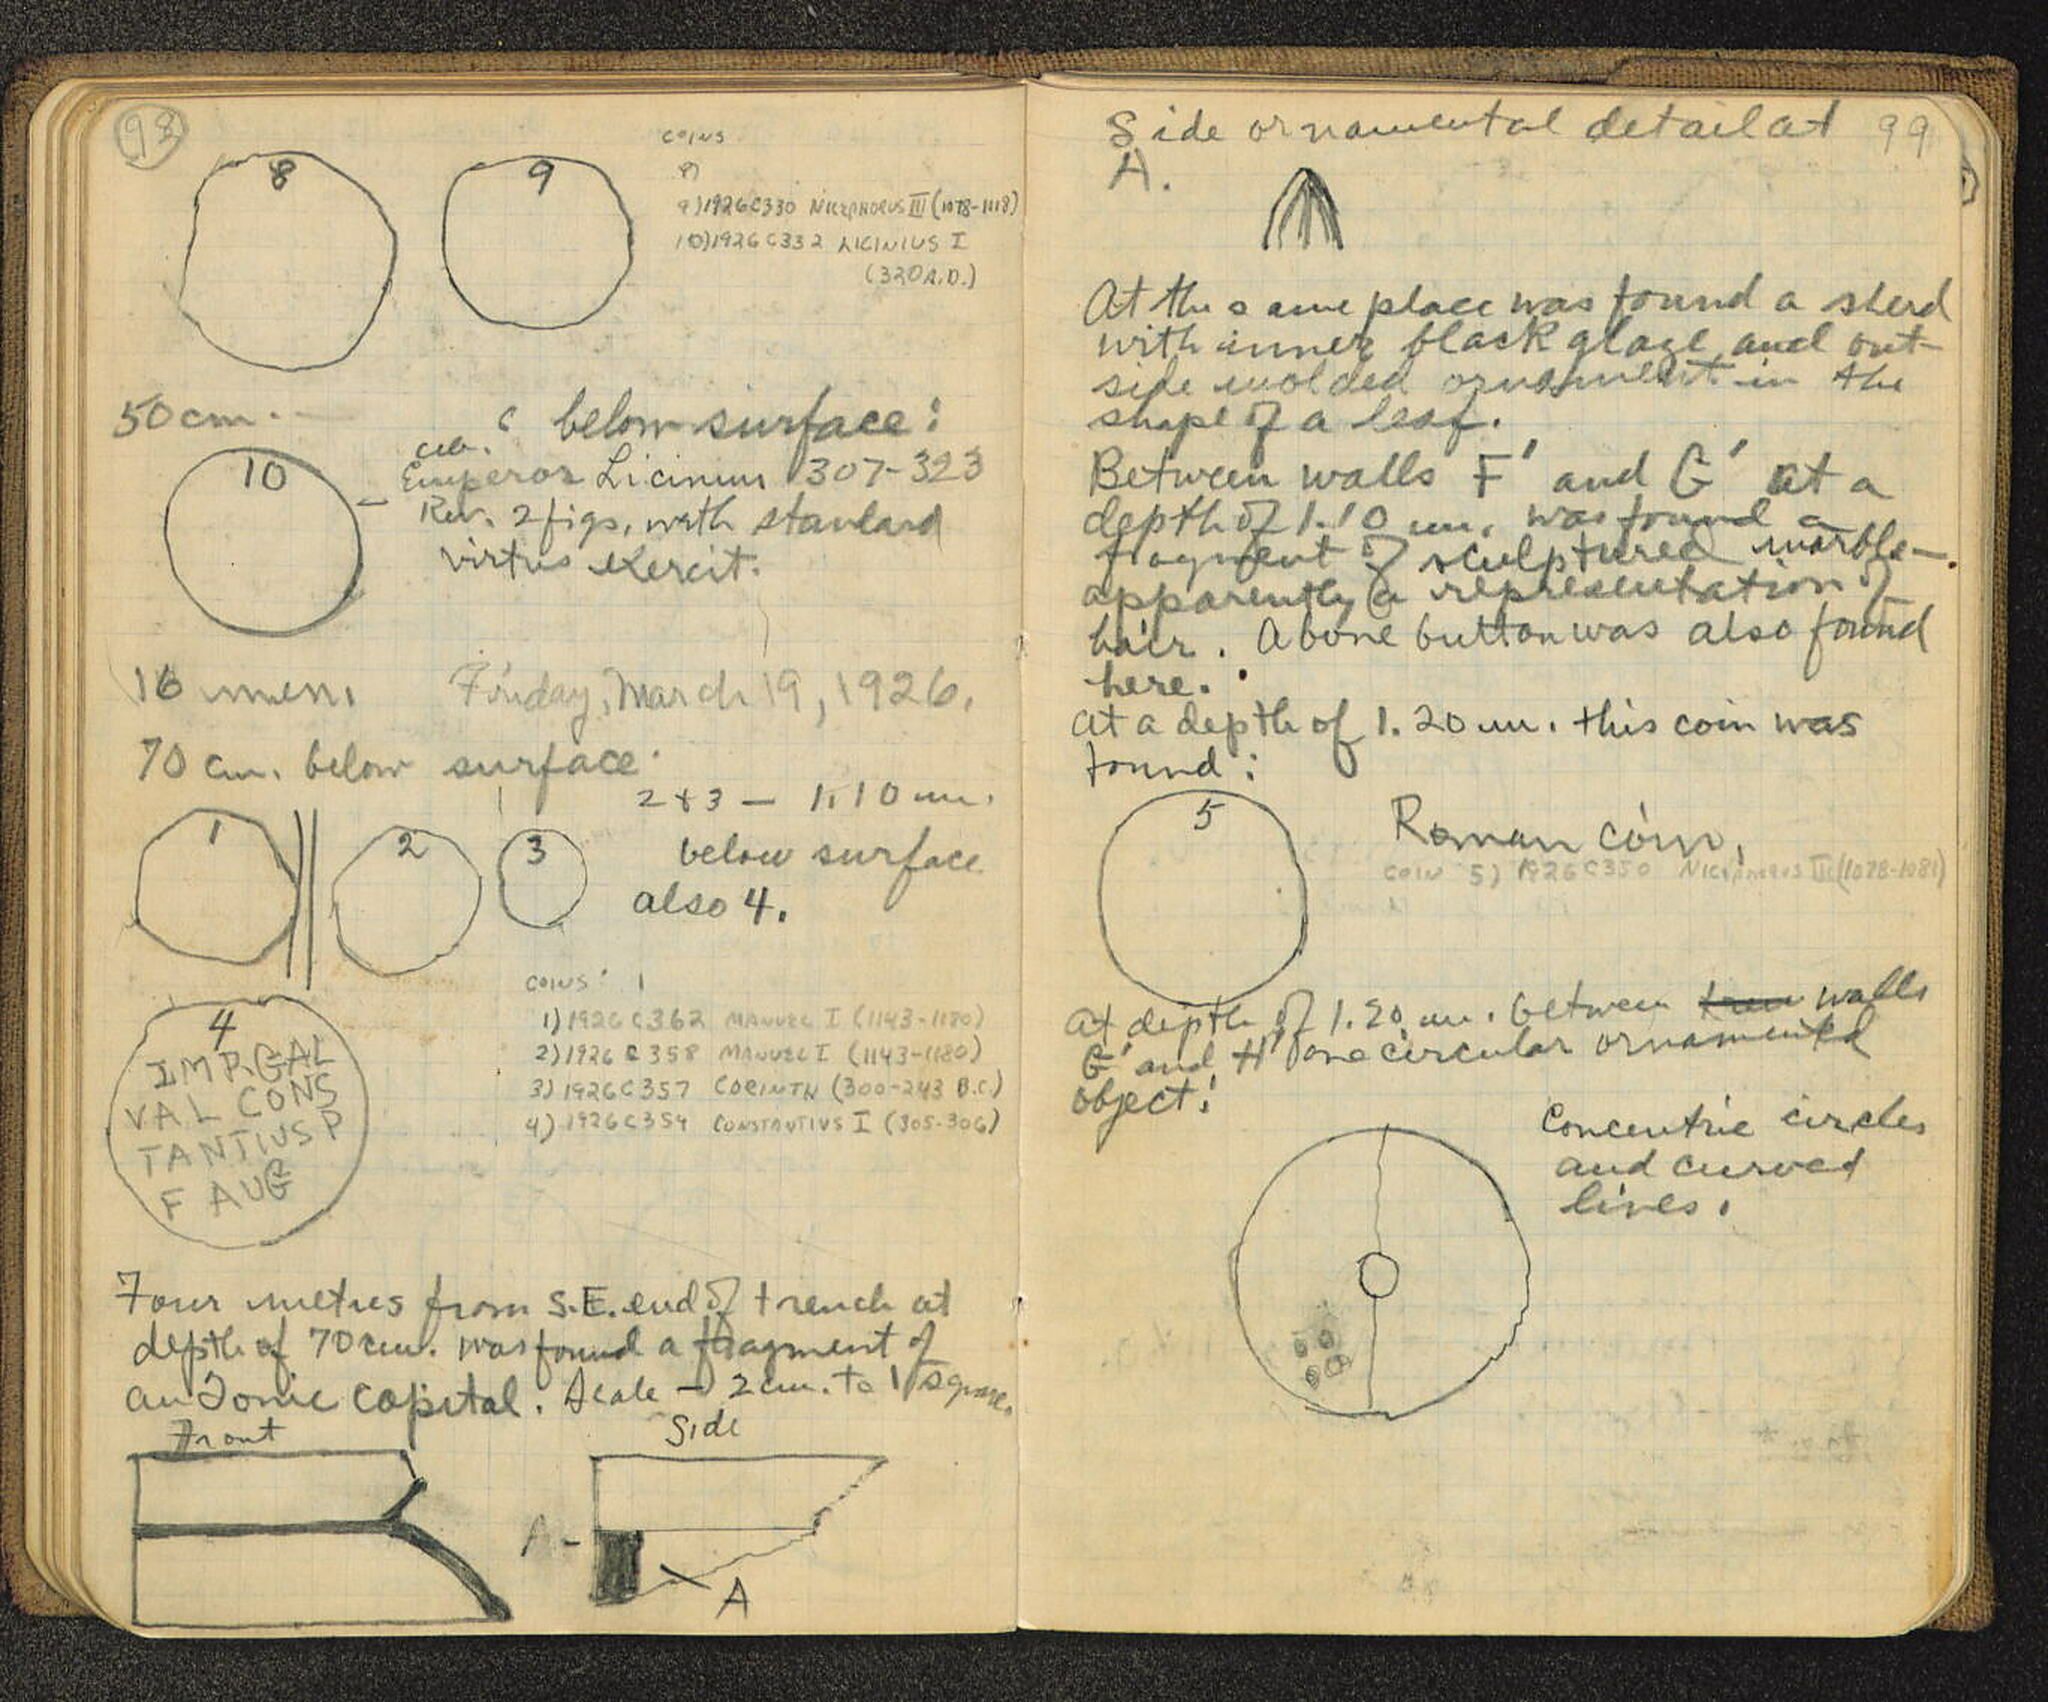 98
8
9
COINS
8)
9) 1926 C330 NICEPHORUS III (1078-1118)
10) 1926 C332 LICINIUS I
(320 A.D.)
50 cm. below surface:
10
Emperor Licinius 307-323
Rev. 2 figs. with standard
virtus exercit.
16 men. Friday, March 19, 1926.
70 cm. below surface
1
2
3
2 + 3 — 1.10 m.
below surface
also 4.
COINS: 1
1) 1926 C362 MANUEL I (1143-1180)
2) 1926 C358 MANUEL I (1143-1180)
3) 1926 C357 CORINTH (300-243 B.C.)
4) 1926 C354 CONSTANTIUS I (305-306)
4
IMP. GAL
VAL CONS
TANTIUS P
F AUG
Four metres from S.E. end of trench at
depth of 70 cm. was found a fragment of
an Ionic capital. Scale — 2 cm. to 1 square.
Front
Side
A -
A
99
Side ornamental detail at
A.
At the same place was found a sherd
with inner black glaze and out-
side molded ornament in the
shape of a leaf.
Between walls F' and G' at a
depth of 1.10 m. was found a
fragment of sculptured marble —
apparently a representation of
hair. A bone button was also found
here.
At a depth of 1.20 m. this coin was
found:
5
Roman coin.
COIN 5) 1926 C350 NICEPHORUS III (1078-1081)
At depth of 1.20 m. between walls
G' and H' one circular ornamented
object:
Concentric circles
and curved
lines.